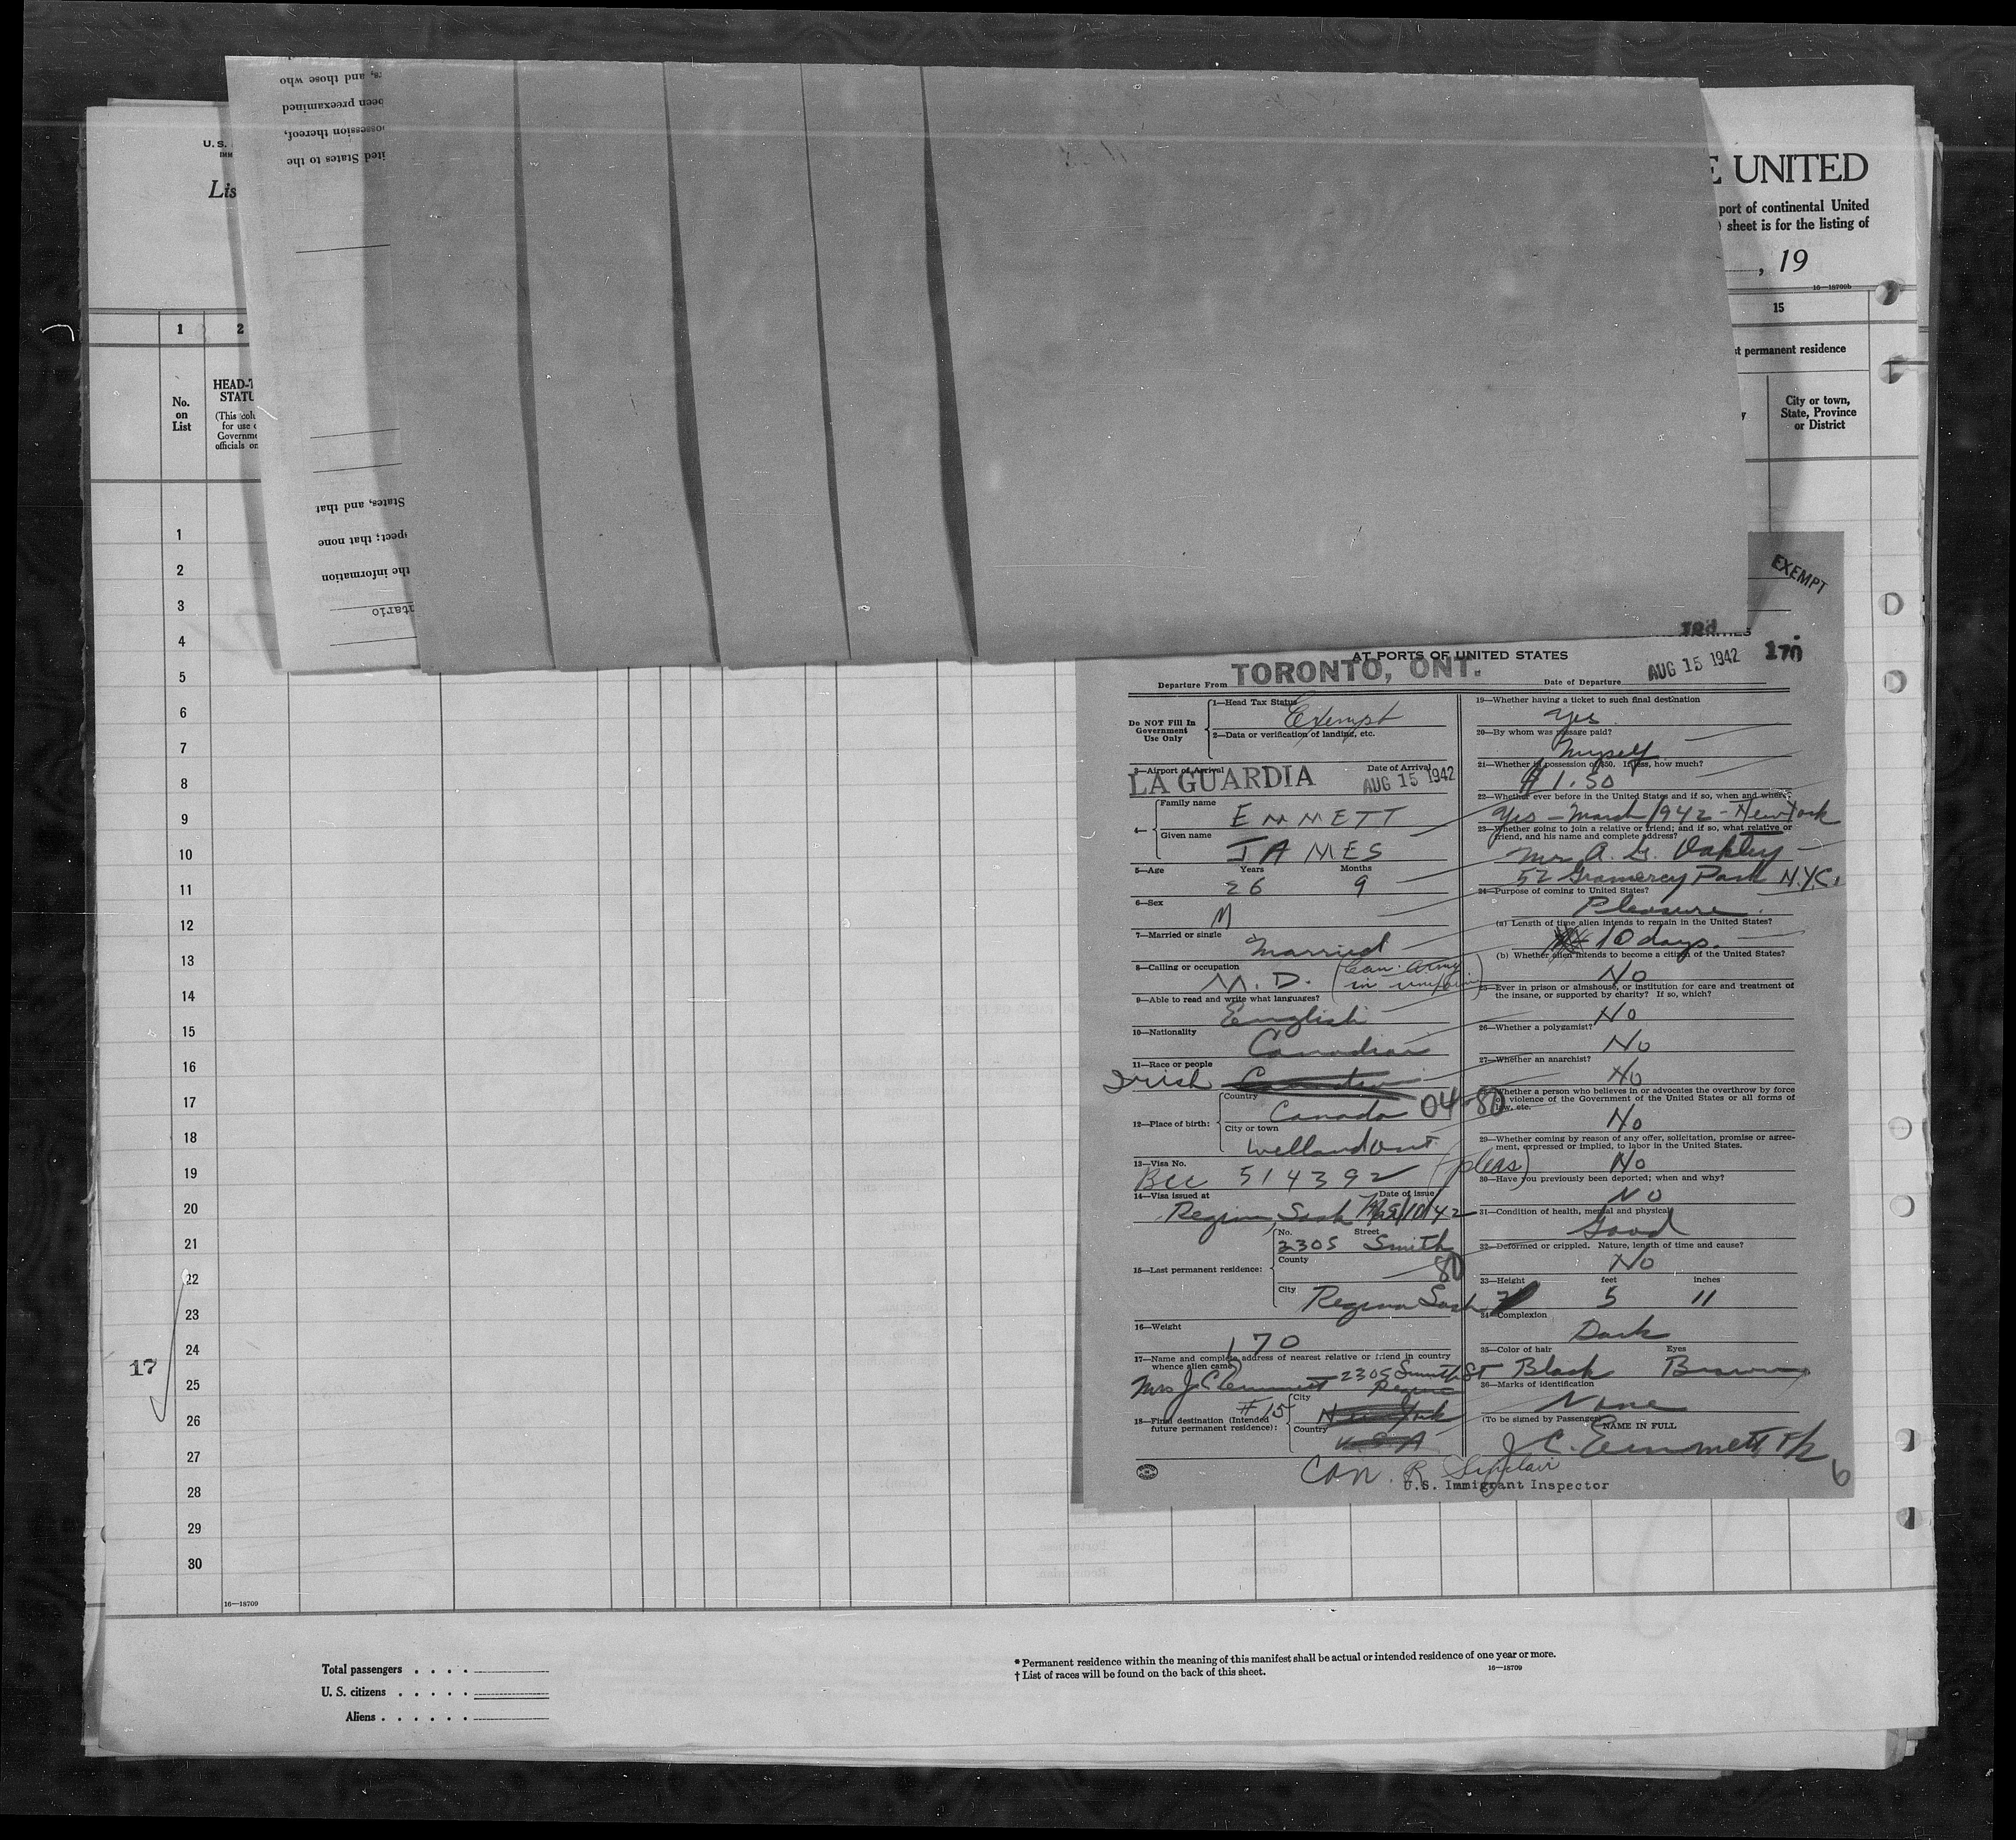 rs, and those who
been preexamined
possession thereof,
ited States to the
States, and that
spect; that none
the information
ntario
U. S.
IMM
Lis
E UNITED
port of continental United
sheet is for the listing of
, 19
16—18700b
1
2
15
t permanent residence
No.
on
List
HEAD-T
STATU
(This colu
for use o
Governme
officials on
y
City or town,
State, Province
or District
1
2
3
4
5
6
7
8
9
10
11
12
13
14
15
16
17
18
19
20
21
22
23
24
25
26
27
28
29
30
17
16—18709
EXEMPT
AT PORTS OF UNITED STATES
170
Departure From TORONTO, ONT.
Date of Departure AUG 15 1942
Do NOT Fill In
Government
Use Only
1—Head Tax Status
Exempt
2—Data or verification of landing, etc.
3—Airport of Arrival
LA GUARDIA
Date of Arrival
AUG 15 1942
4—
Family name
EMMETT
Given name
JAMES
5—Age
Years
Months
26 9
6—Sex
M
7—Married or single
Married
8—Calling or occupation
M. D. (Can. Army
in uniform)
9—Able to read and write what languages?
English
10—Nationality
Canadian
11—Race or people
Irish Canadian
12—Place of birth:
Country
Canada 04-80
City or town
Welland Ont
13—Visa No.
BCC 514392 (pleas)
14—Visa issued at
Date of issue
Regina, Sask Mar/10/42
15—Last permanent residence:
No. Street
2305 Smith
County
80
City
Regina Sask
16—Weight
170
17—Name and complete address of nearest relative or friend in country
whence alien came
Mrs J C Emmett 2305 Smith St
Regina
#15
18—Final destination (Intended
future permanent residence):
City
New York
Country
U.S.A
Can. R. Sinclair
U.S. Immigrant Inspector
19—Whether having a ticket to such final destination
Yes
20—By whom was passage paid?
Myself
21—Whether in possession of $50. If less, how much?
$1.50
22—Whether ever before in the United States and if so, when and where?
Yes - March 1942 - New York
23—Whether going to join a relative or friend; and if so, what relative or
friend, and his name and complete address?
Mr A. G. Oakley
52 Gramercy Park N.Y.C.
24—Purpose of coming to United States?
Pleasure.
(a) Length of time alien intends to remain in the United States?
10 days.
(b) Whether alien intends to become a citizen of the United States?
No
25—Ever in prison or almshouse, or institution for care and treatment of
the insane, or supported by charity? If so, which?
No
26—Whether a polygamist?
No
27—Whether an anarchist?
No
Whether a person who believes in or advocates the overthrow by force
or violence of the Government of the United States or all forms of
law, etc.
No
29—Whether coming by reason of any offer, solicitation, promise or agree-
ment, expressed or implied, to labor in the United States.
No
30—Have you previously been deported; when and why?
No
31—Condition of health, mental and physical
Good
32—Deformed or crippled. Nature, length of time and cause?
No
33—Height feet inches
5 11
34—Complexion
Dark
35—Color of hair Eyes
Black Brown
36—Marks of identification
None
(To be signed by Passenger)
NAME IN FULL
J C. Emmett
6
Total passengers . . . .
U. S. citizens . . . . .
Aliens . . . . . .
* Permanent residence within the meaning of this manifest shall be actual or intended residence of one year or more.
† List of races will be found on the back of this sheet.
16—18709